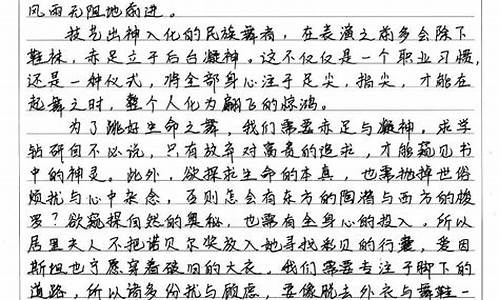 风雨无阻地前进。
技艺出神入化的民族舞者，在表演之前多会除下
鞋袜，赤足立于后台凝神。这不仅仅是一个职业习惯，
还是一种仪式，将全部身心注于足尖，指尖，才能在
起舞之时，整个人化为翩飞的惊鸿。
为了跳好生命之舞，我们需要赤足与凝神，求学
钻研自不必说，只有放弃对富贵的追求，才能窥见书
中的神灵。此外，欲探求生命的本真，也需抛掉世俗
烦扰与心中杂念，否则怎会有东方的陶潜与西方的梭
罗？欲窥探自然的奥秘，也需有全身心的投入。所以
居里夫人不把诺贝尔奖放入她寻找彩贝的行囊，爱因
斯坦也宁愿穿着破旧的大衣。我们需要专注于脚下的
道路，所以诸多纷扰与顾虑，要像脱去外衣与舞鞋一